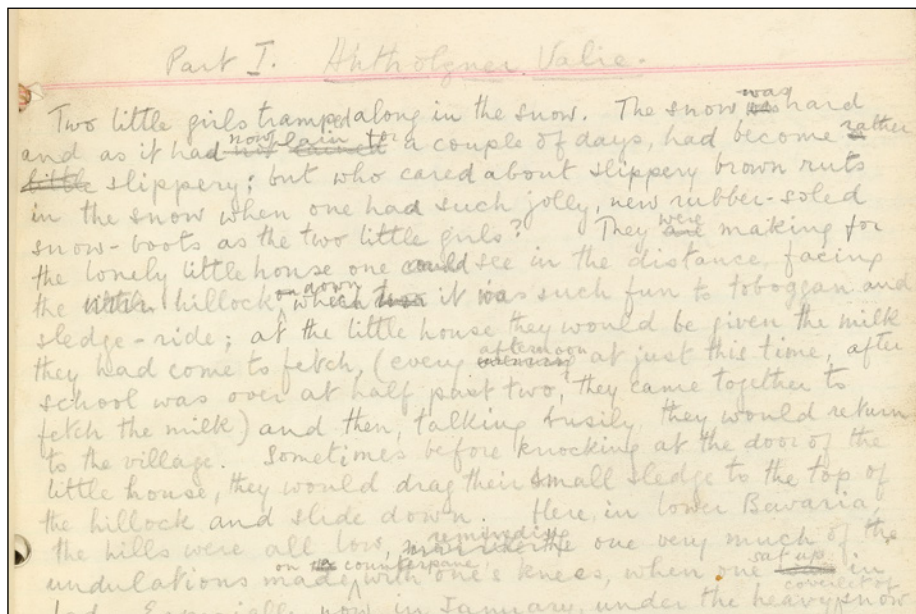 Part I. Valie.
Two little girls tramped along in the snow. The snow was hard
and as it had now lain for a couple of days, had become rather
little slippery; but who cared about slippery brown ruts
in the snow when one had such jolly, new rubber-soled
snow-boots as the two little girls? They were making for
the lonely little house one could see in the distance, facing
the hillock, on down which it was such fun to toboggan and
sledge-ride; at the little house they would be given the milk
they had come to fetch, (every afternoon at just this time, after
school was over at half past two, they came together to
fetch the milk) and then, talking busily, they would return
to the village. Sometimes before knocking at the door of the
little house, they would drag their small sledge to the top of
the hillock and slide down. Here, in lower Bavaria,
the hills were all low, reminding one very much of the
undulations made on the counterpane with one's knees, when one sat up in
bed. Especially now in January, under the heavy snow
coverlet of